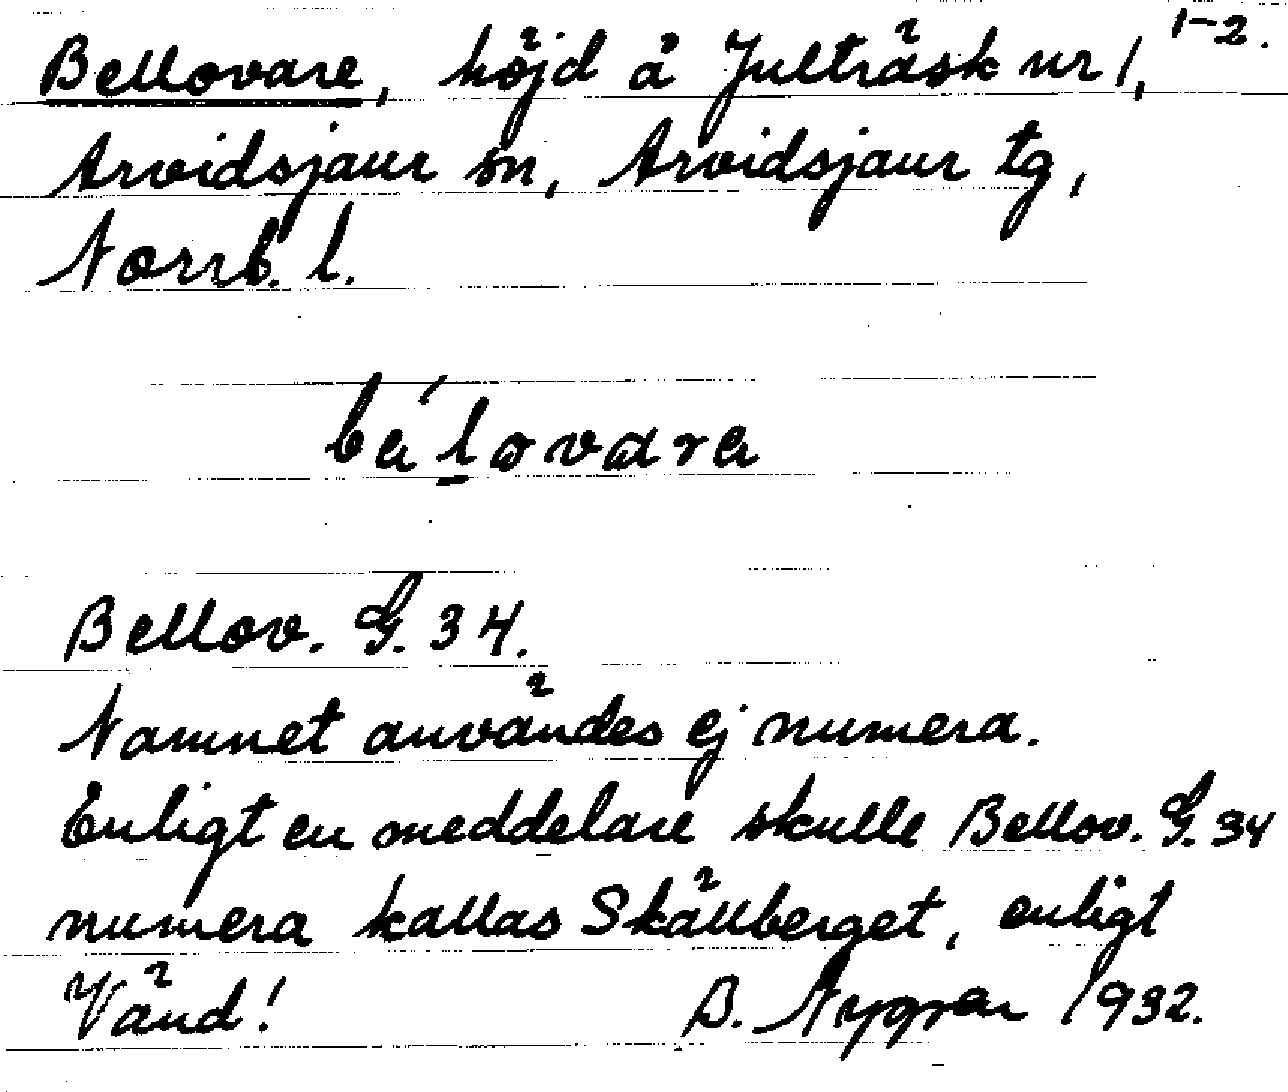 Bellovare, höjd å Julträsk nr 1, 1-2.
Arvidsjaur sn, Arvidsjaur tg,
Norrb. l.
bɑ́l̠ovɑrɑ
Bellov. G. 34.
Namnet användes ej numera.
Enligt en meddelare skulle Bellov. G. 34
numera kallas Skällberget, enligt
Vänd! B. Nygren 1932.